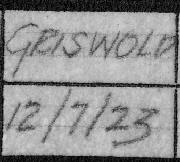 GRISWOLD
12/7/23